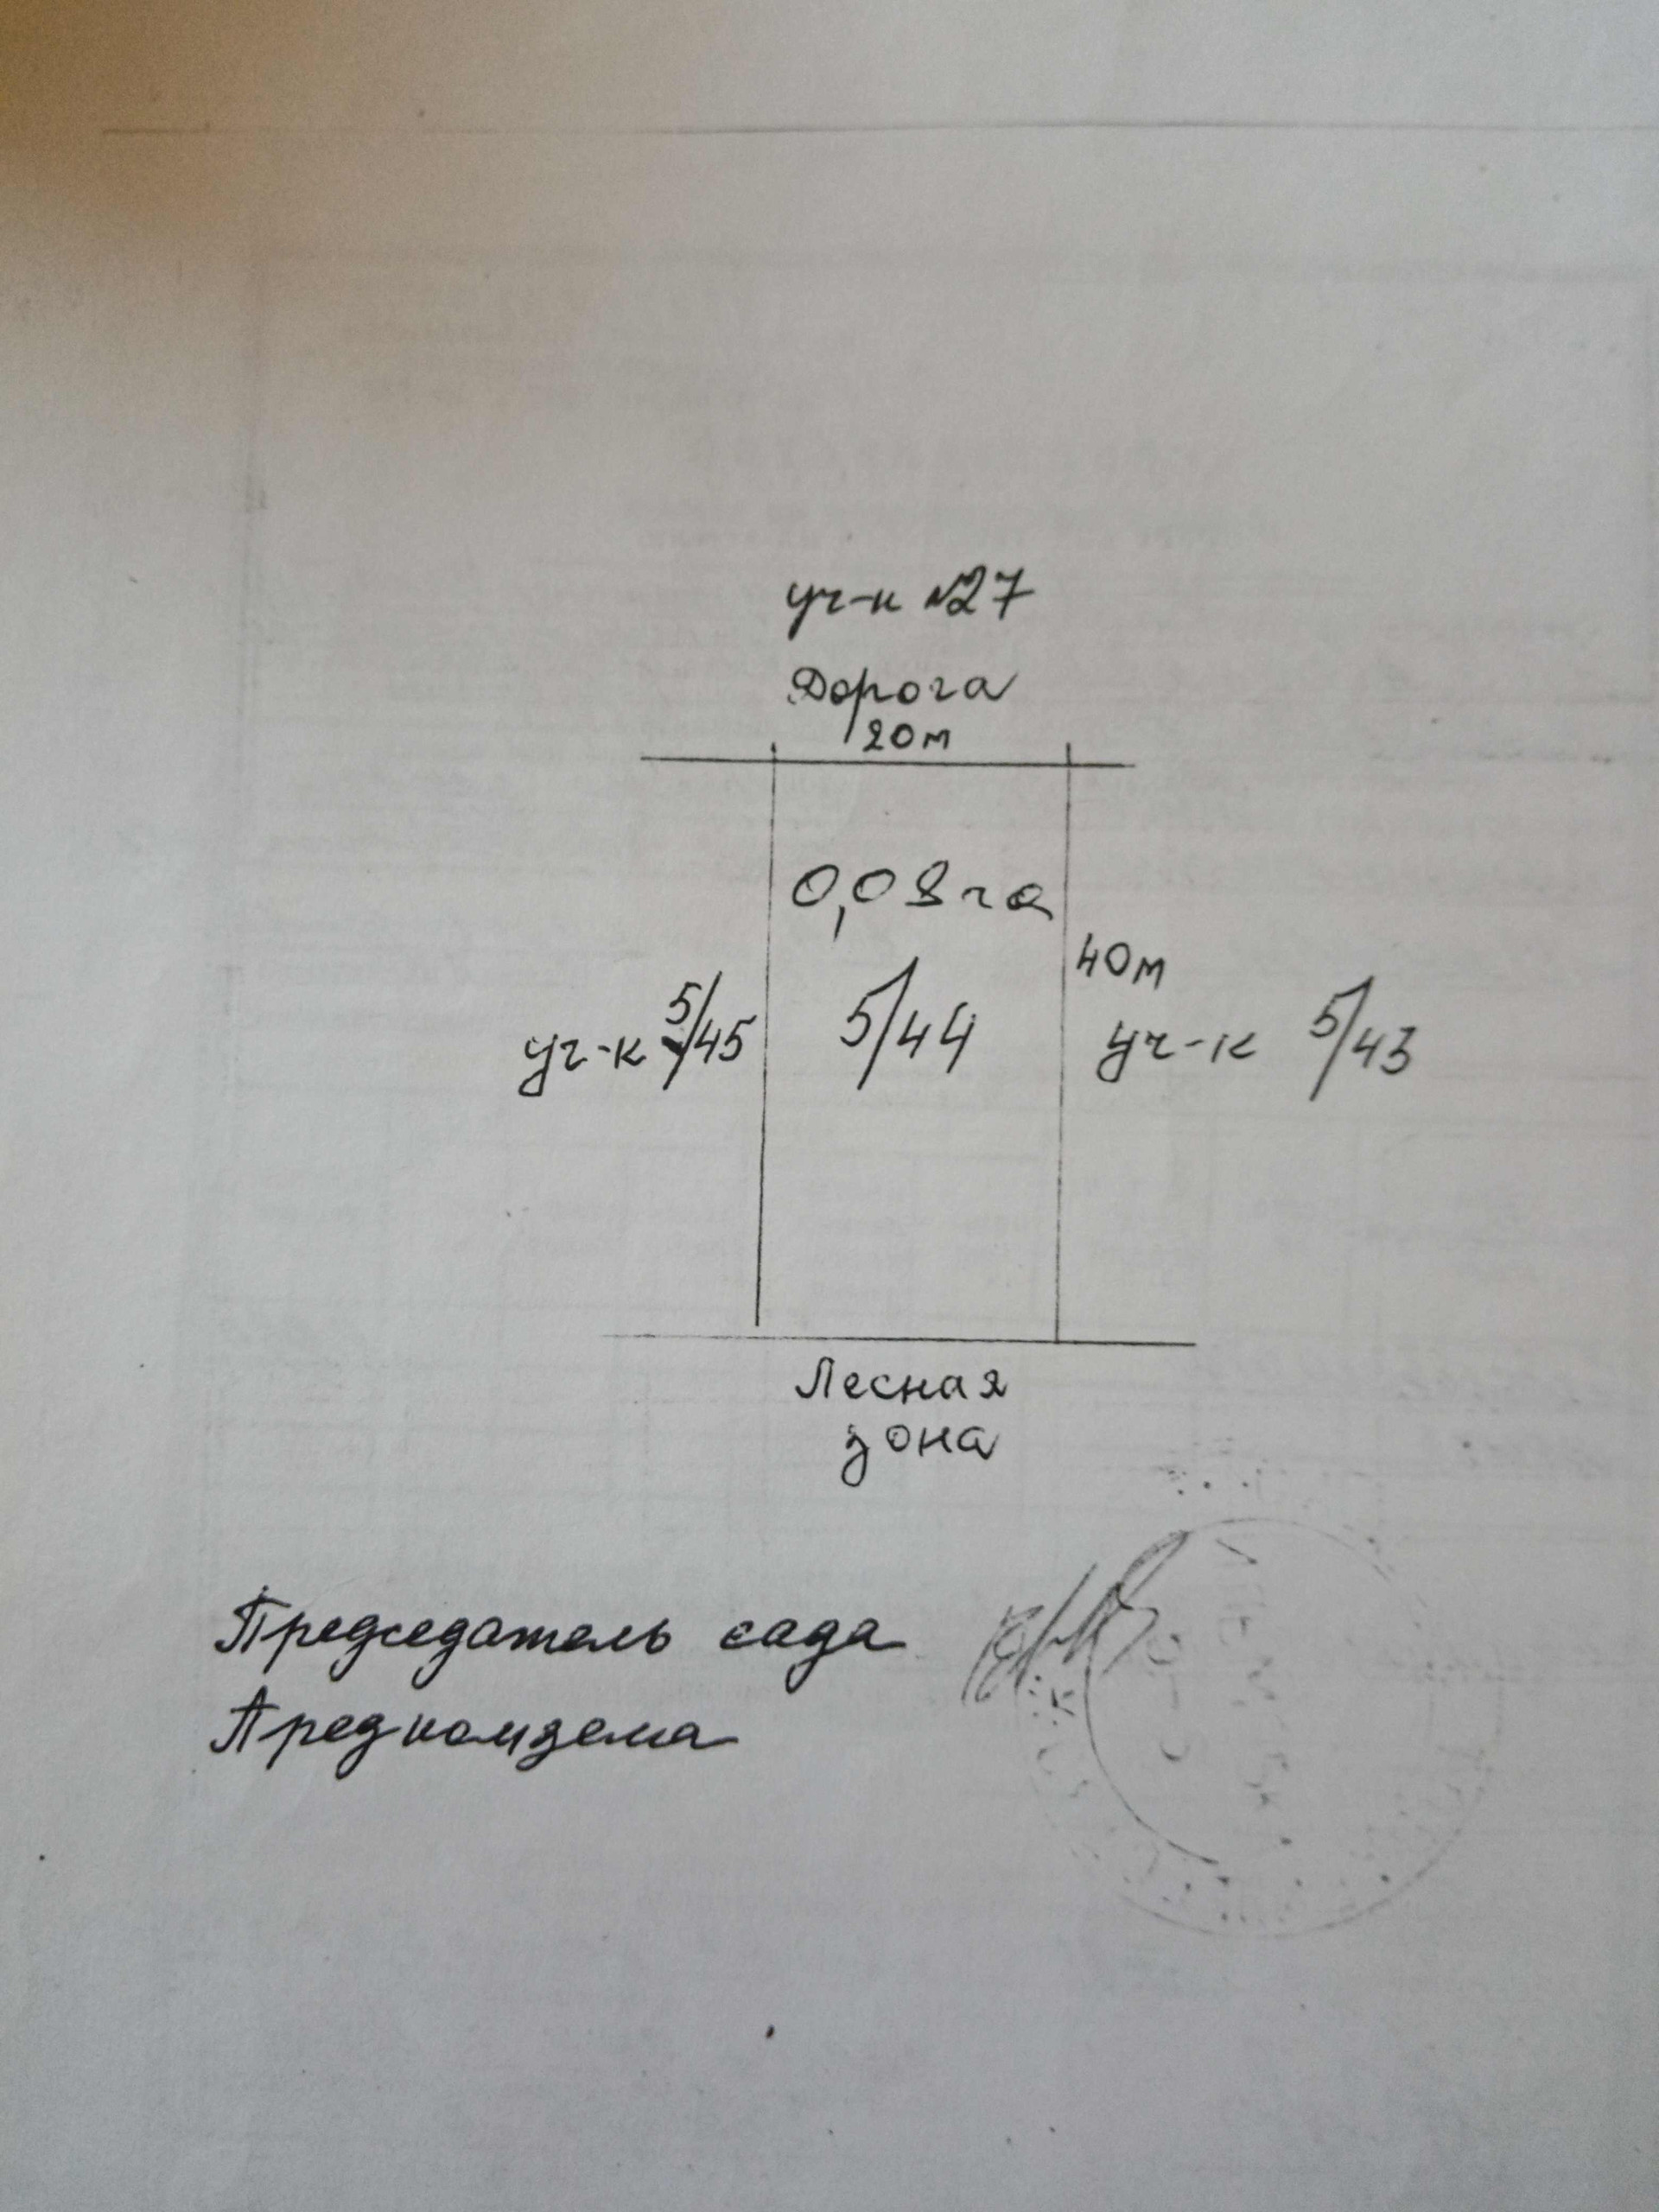 уч-к №27
Дорога
20м
0,08га
40м
уч-к 5/45
5/44
уч-к 5/43
Лесная
зона
Председатель сада
Предкомзема